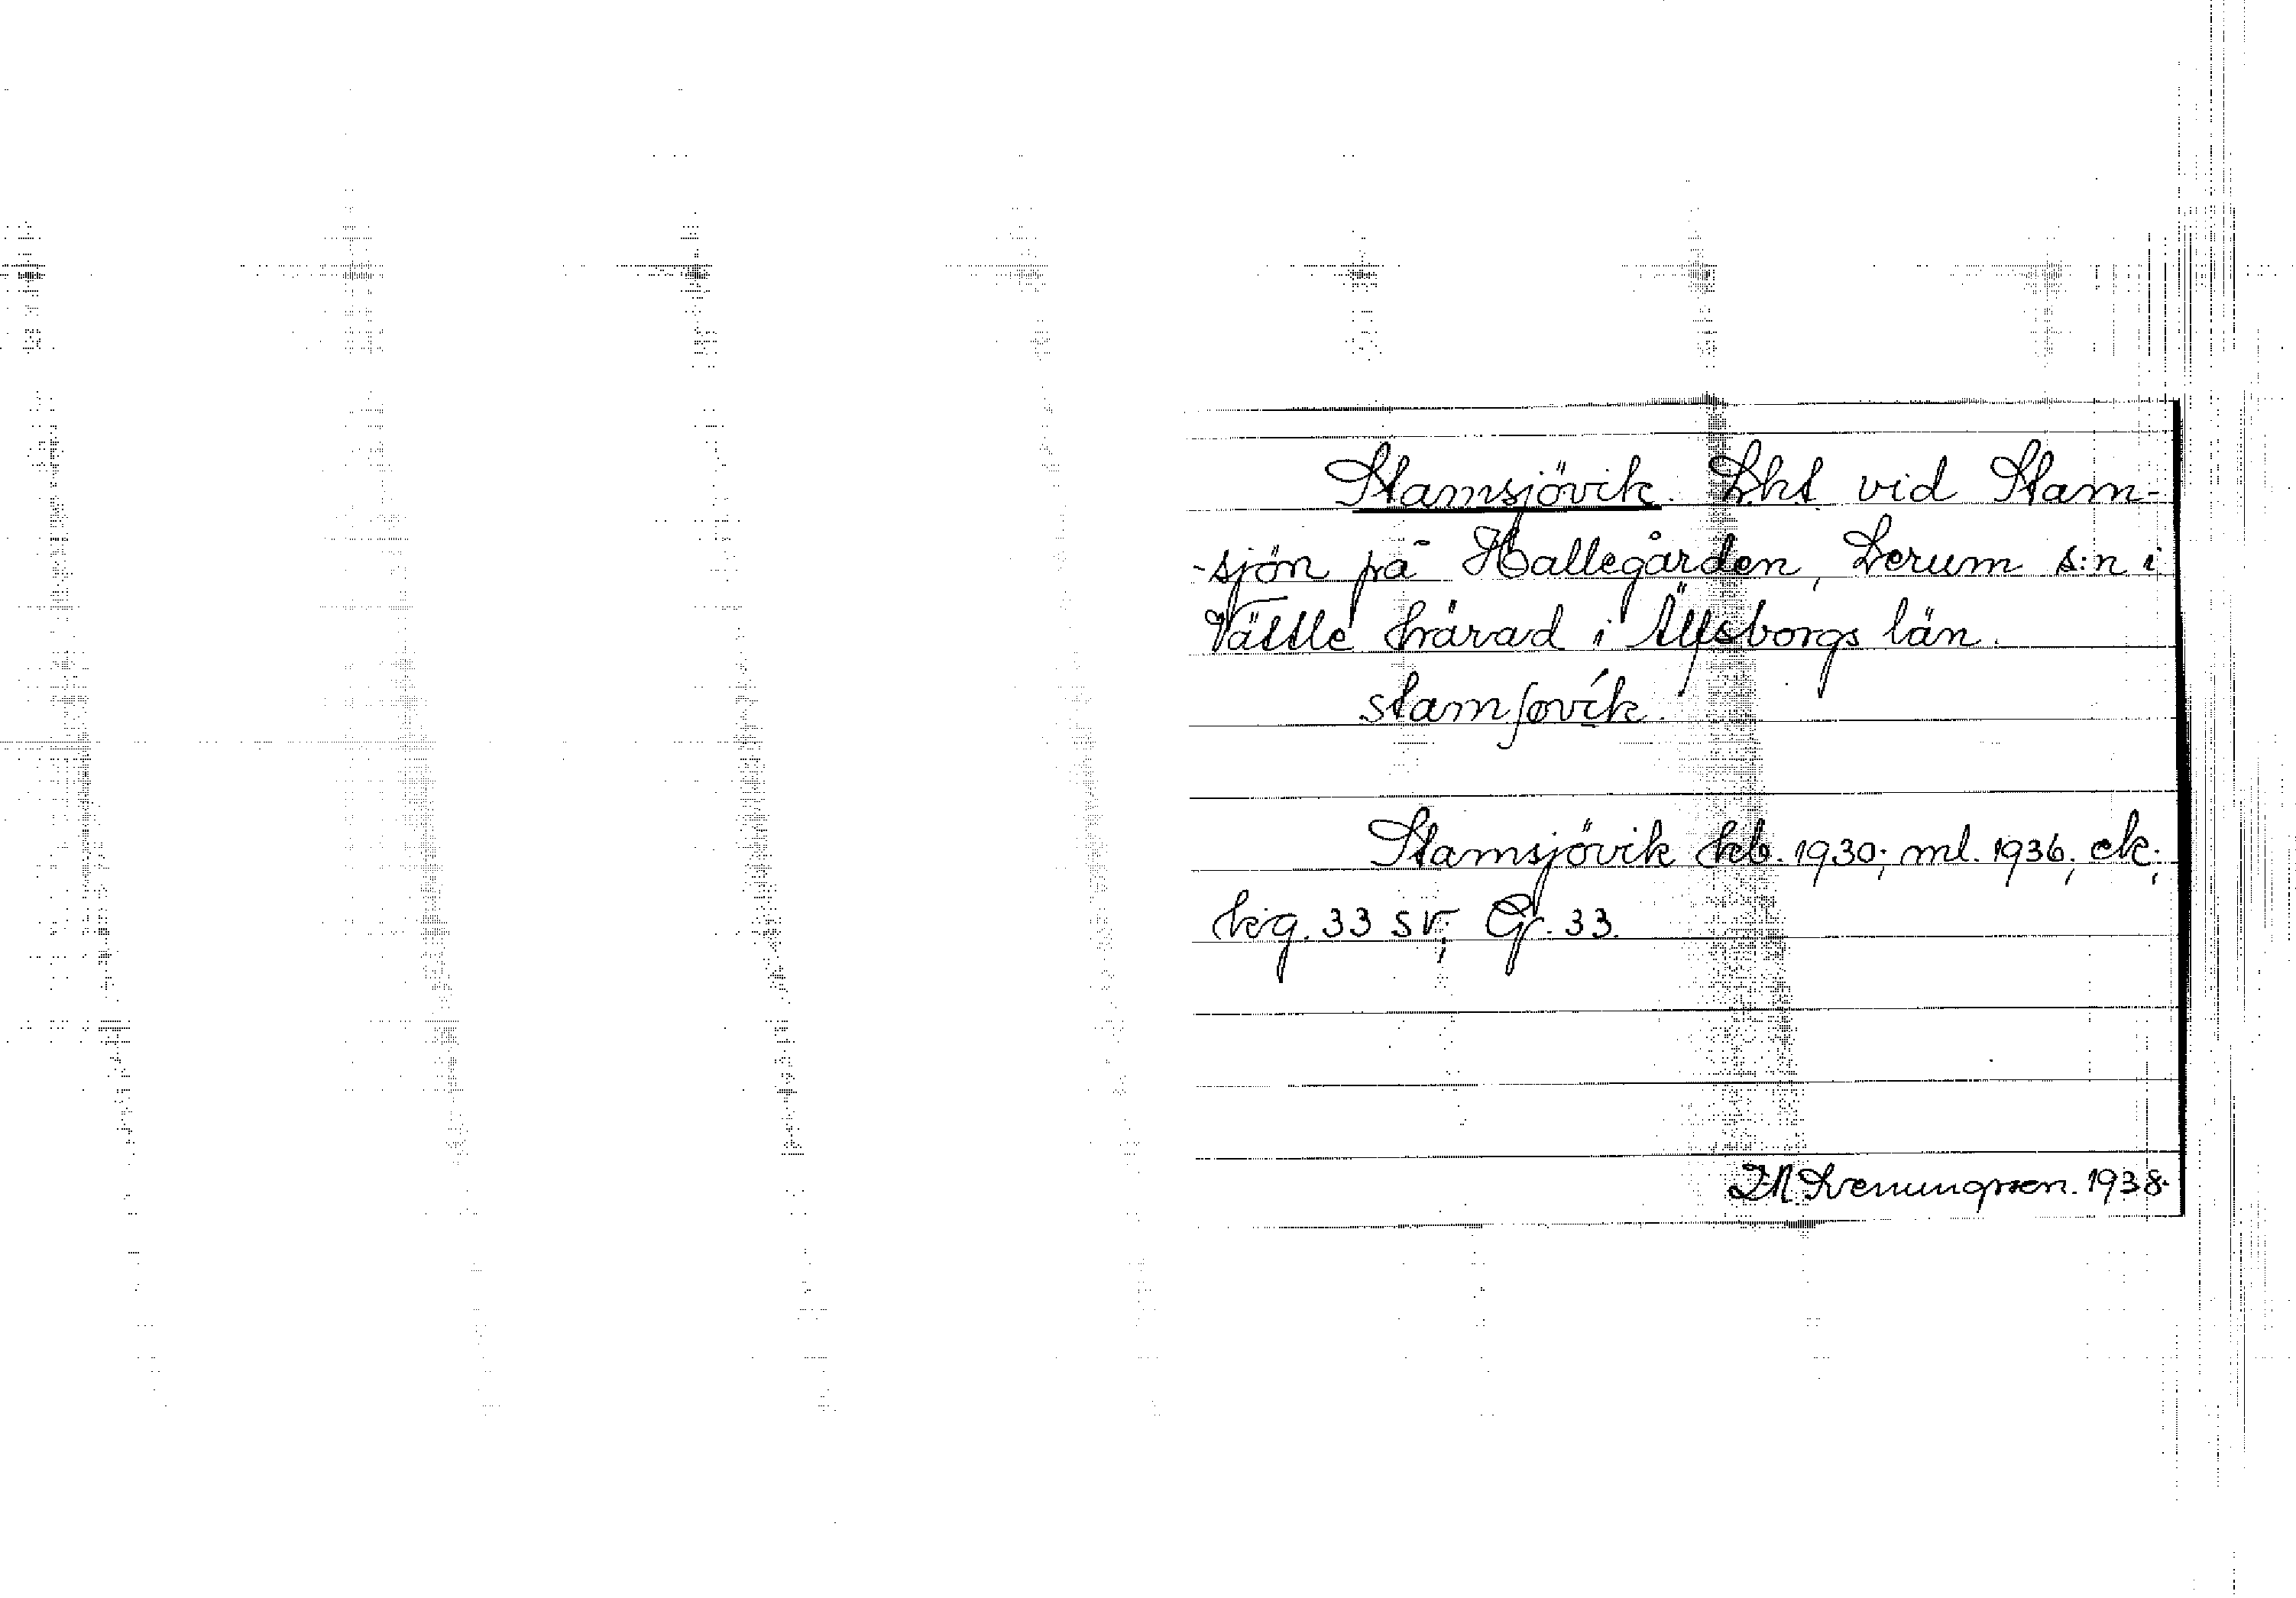 Stamsjövik. Lht vid Stam-
-sjön på Hallegården, Lerum s:n i
Vättle härad i Älfsborgs län.
stamʃøvik.
Stamsjövik kb. 1930; ml. 1936; ek;
hig. 33 sv; Gr. 33.
1938.